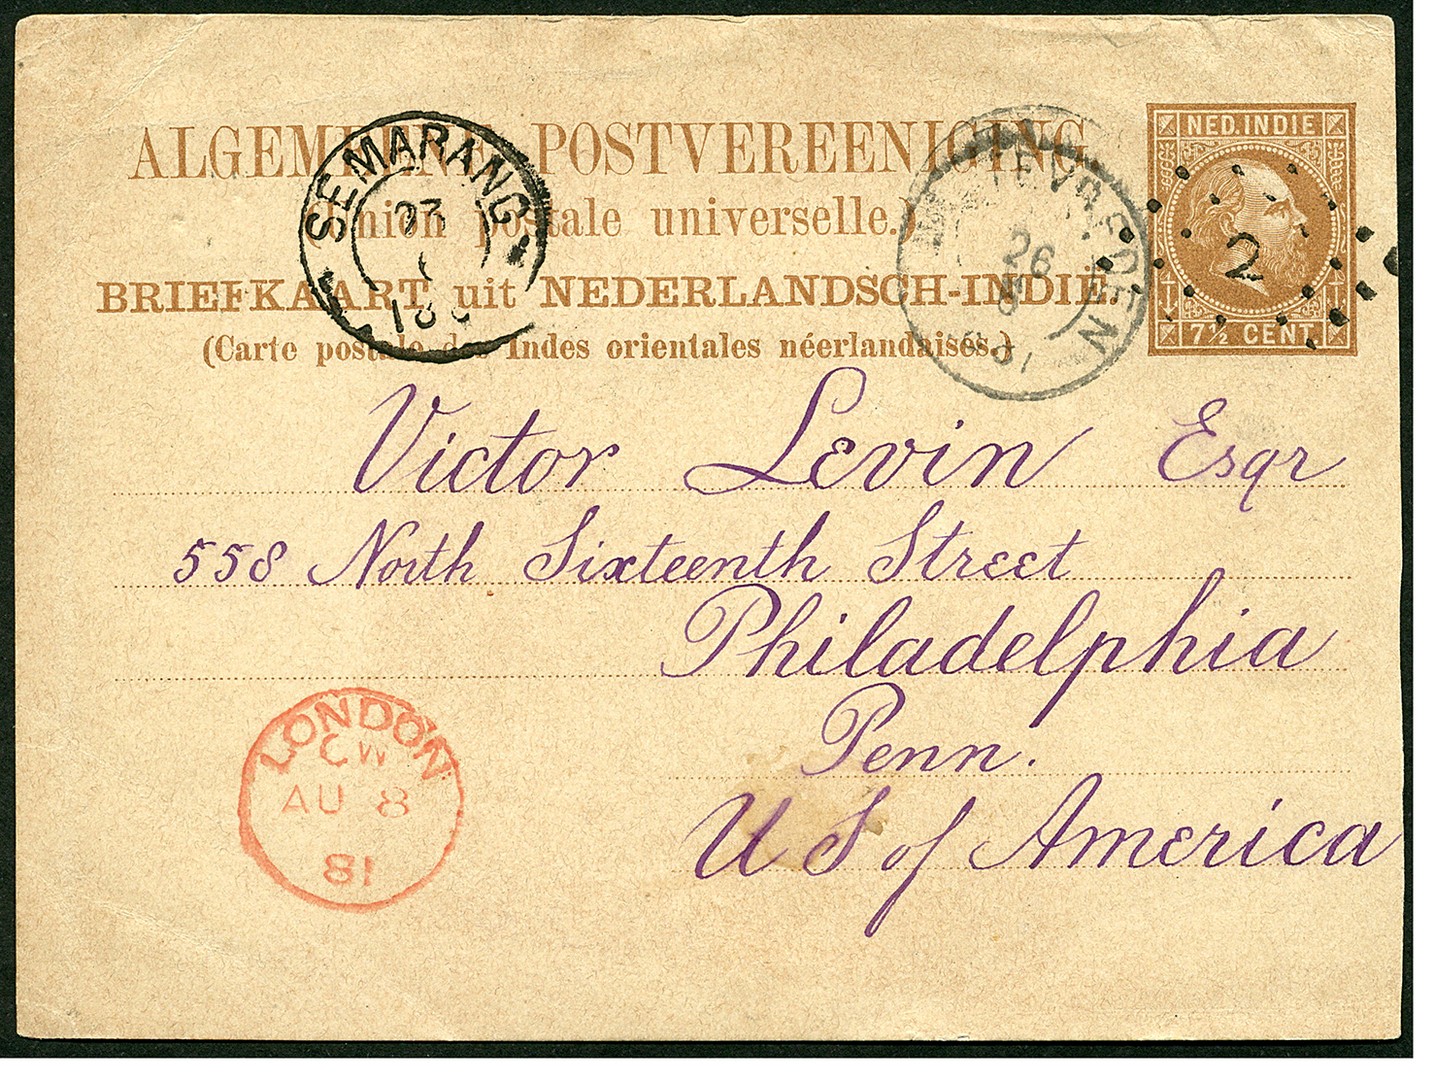 ALGEMEENE POSTVEREENIGING
(Union postale universelle.)
BRIEFKAART uit NEDERLANDSCH-INDIË.
(Carte postale des Indes orientales néerlandaises.)
NED. INDIE
2
7½ CENT.
SEMARANG
23
6
188
WELTEVREDEN
26
6
81
Victor Levin Esqr
558 North Sixteenth Street
Philadelphia
Penn.
U S of America
LONDON
CW
AU 8
81